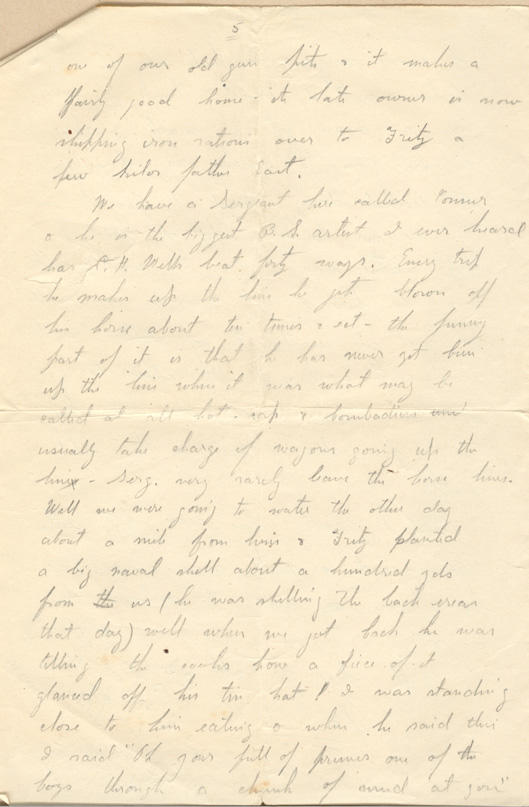 5
one of our old gun pits & it makes a
fairly good home - its late owner is now
shipping iron rations over to Fritz a
few kilos further East.
We have a Sergeant here called
& he is the biggest B.S. artist I ever heard
has H. Wells beat forty ways. Every trip
he makes up the line he gets blown off
his horse about ten times & ect - the funny
part of it is that he has never yet been
up the line when it was what may be
called at all hot. & bombadiers
usually take charge of wagons going up the
line - Serg. very rarely leave the horse lines.
Well we were going to water the other day
about a mile from lines & Fritz planted
a big naval shell about a hundred yds
from us (he was shelling the back areas
that day) well when we got back he was
telling the cooks how a piece of it
glanced off his tin hat & I was standing
close to him eating & when he said this
I said "Oh your full of prunes one of the
boys through a chunk of mud at you"